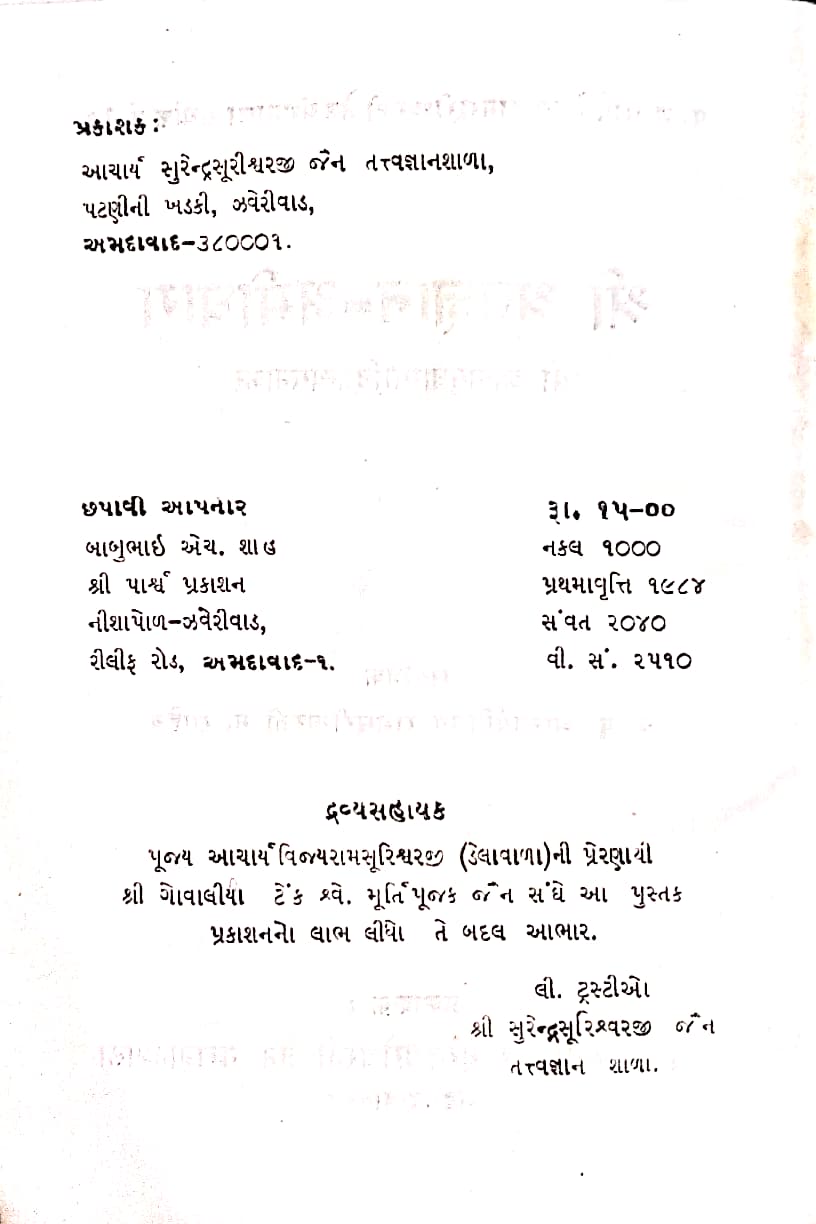 પ્રકાશક:
આચાર્ય સુરેન્દ્રસૂરીશ્વરજી જૈન તત્ત્વજ્ઞાનશાળા,
પટણીની ખડકી, ઝવેરીવાડ,
અમદાવાદ-૩૮૦૦૦૧.
છપાવી આપનાર
બાબુભાઇ એચ. શાહ
શ્રી પાર્શ્વ પ્રકાશન
નીશાપોળ-ઝવેરીવાડ,
રીલીફ રોડ, અમદાવાદ-૧.
રૂા. ૧૫-૦૦
નકલ ૧૦૦૦
પ્રથમાવૃત્તિ ૧૯૮૪
સંવત ૨૦૪૦
વી. સં. ૨૫૧૦
દ્રવ્યસહાયક
પૂજ્ય આચાર્ય વિજયરામસૂરિશ્વરજી (ડેલાવાળા)ની પ્રેરણાથી
શ્રી ગોવાલીયા ટેંક શ્વે. મૂર્તિપૂજક જૈન સંઘે આ પુસ્તક
પ્રકાશનનો લાભ લીધો તે બદલ આભાર.
લી. ટ્રસ્ટીઓ
શ્રી સુરેન્દ્રસૂરિશ્વરજી જૈન
તત્ત્વજ્ઞાન શાળા.